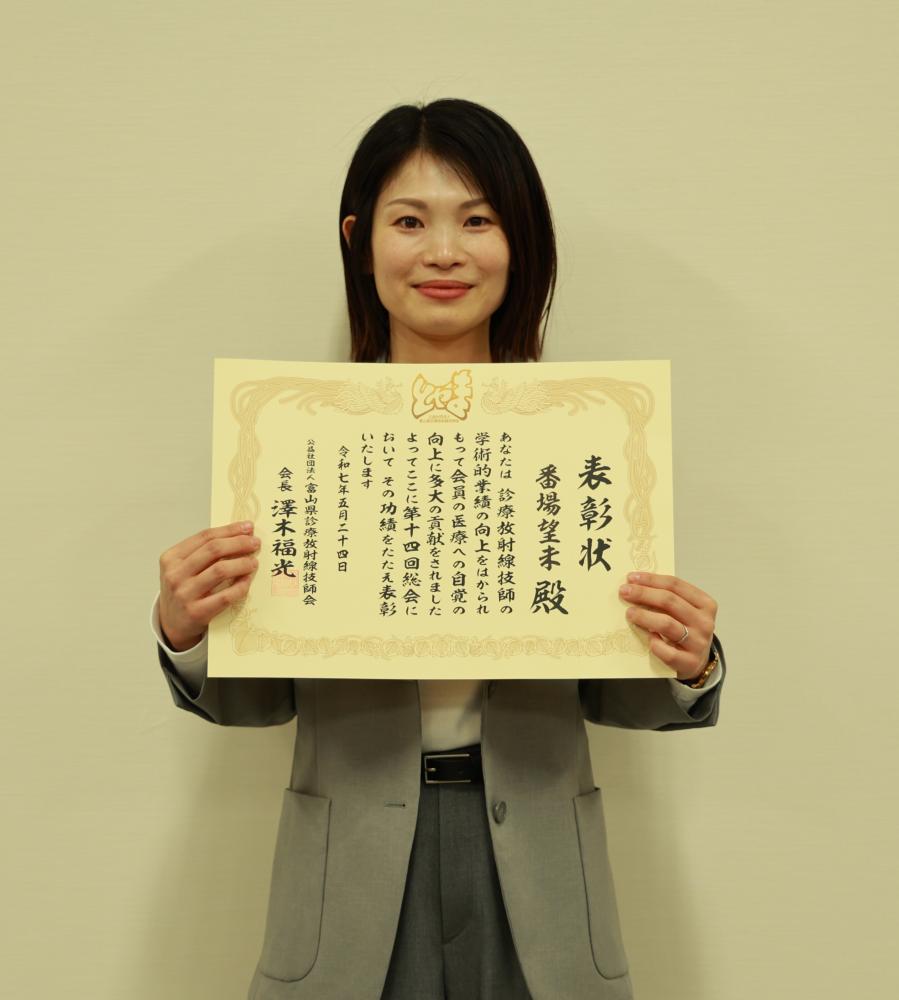 とやま
表彰状
番場望未 殿
あなたは 診療放射線技師の
学術的業績の向上をはかられ
もって会員の医療への自覚の
向上に多大の貢献をされました
よってここに第十四回総会に
おいて その功績をたたえ表彰
いたします
令和七年五月二十四日
公益社団法人 富山県診療放射線技師会
会長 澤木福光